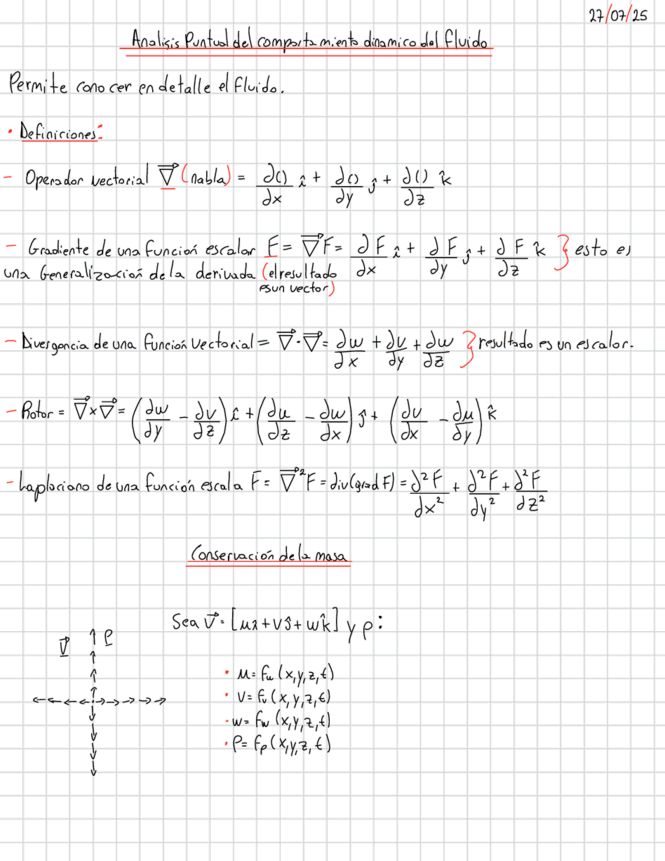 27/07/25
Analisis Puntual del comportamiento dinamico del fluido
Permite conocer en detalle el fluido.
• Definiciones:
- Operador vectorial ∇⃗ (nabla) = ∂()/∂x î + ∂()/∂y ĵ + ∂()/∂z k̂
- Gradiente de una función escalar F = ∇⃗F = ∂F/∂x î + ∂F/∂y ĵ + ∂F/∂z k̂ } esto es
una Generalización de la derivada (el resultado
es un vector)
- Divergencia de una función Vectorial = ∇⃗·V⃗ = ∂w/∂x + ∂v/∂y + ∂w/∂z } resultado es un escalar.
- Rotor = ∇⃗×V⃗ = (∂w/∂y - ∂v/∂z) î + (∂u/∂z - ∂w/∂x) ĵ + (∂v/∂x - ∂u/∂y) k̂
- Laplaciano de una función escala F = ∇⃗²F = div(grad F) = ∂²F/∂x² + ∂²F/∂y² + ∂²F/∂z²
Conservación de la masa
Sea V⃗ = [uî + vĵ + wk̂] y ρ:
V⃗ ρ
• u = fu (x,y,z,t)
• v = fv (x,y,z,t)
• w = fw (x,y,z,t)
• ρ = fρ (x,y,z,t)